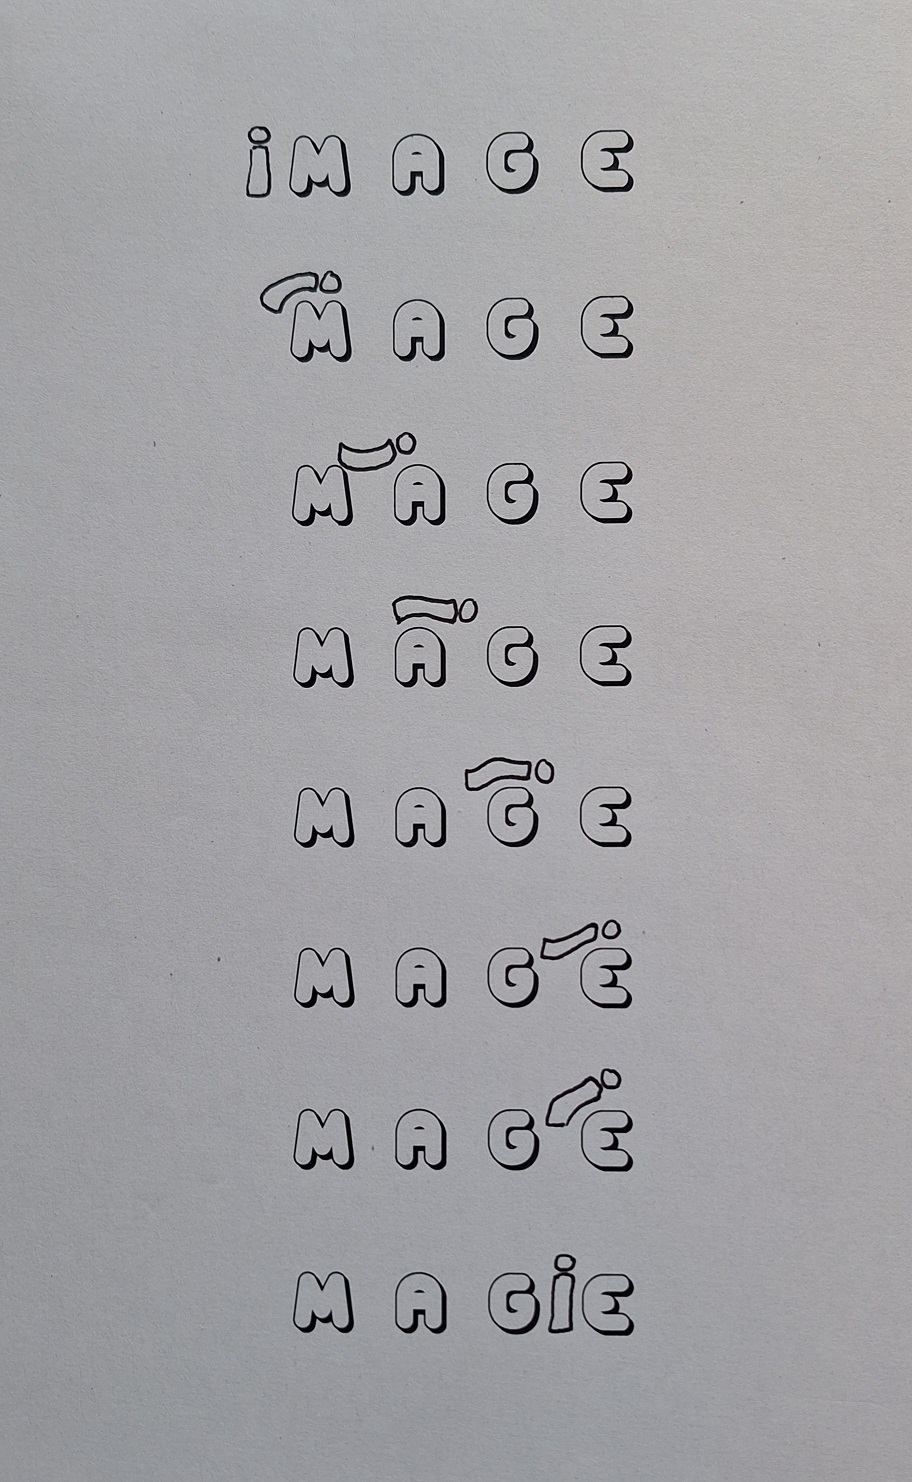 iMAGE
iMAGE
MiAGE
MAiGE
MAGiE
MAGiE
MAGiE
MAGiE